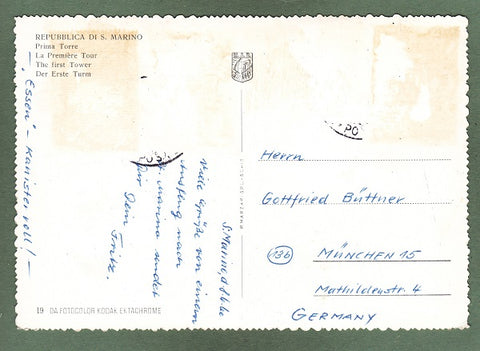 REPUBBLICA DI S. MARINO
Prima Torre
La Première Tour
The first Tower
Der Erste Turm
- "Essen" - Kanister voll! -
S. Marino, d.
Viele Grüße von einem
Ausflug nach
S. Marino sendet
Dir Dein Fritz.
PO
POS
Herrn
Gottfried Büttner
(13b) MÜNCHEN 15
Mathildenstr. 4
GERMANY
19 DA FOTOCOLOR KODAK EKTACHROME